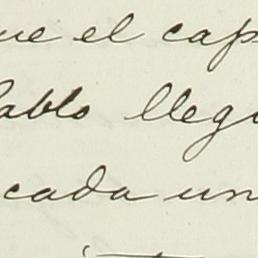 ue el cap
Pablo lleg
cada un